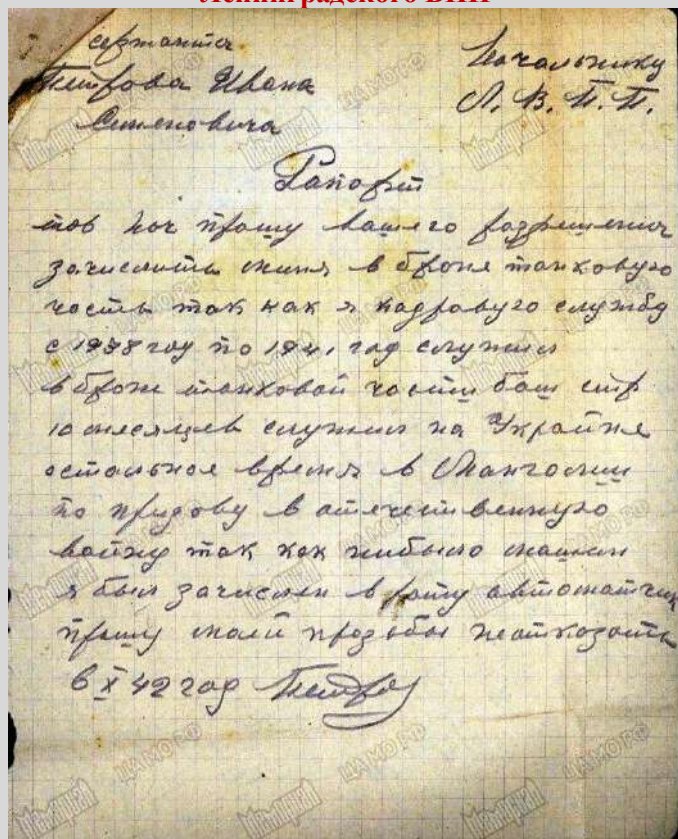 Ленинградского ВПП
сержанта
Петрова Ивана
Семеновича
Начальнику
Л. В. П. П.
Рапорт
тов нач прошу вашего разрешения
зачислить миня в броня танковую
часть так как я кадравую службу
с 1938 год по 1941 год служил
в броне танковой части баш стр
10 месяцев служил на Украйне
остальное время в Мангольи
по призову в отечественную
войну так как нибыло машин
я был зачислен в роту автоматчик
прошу маей прозьбы неотказать
6 X 42 год Петров